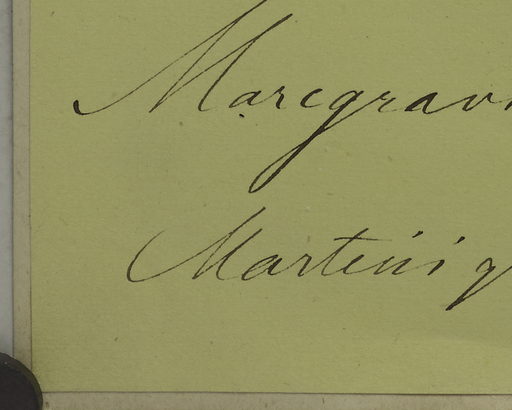 Marcgrav
Martiniq